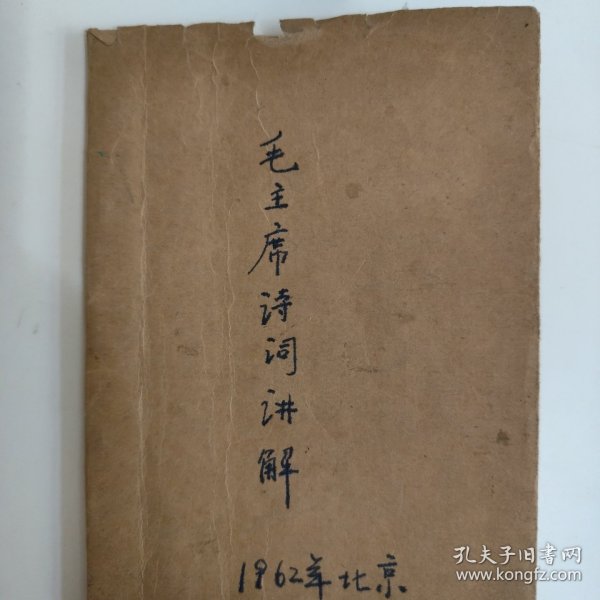 毛主席诗词讲解
1962年北京
孔夫子旧书网
www.kongfz.com